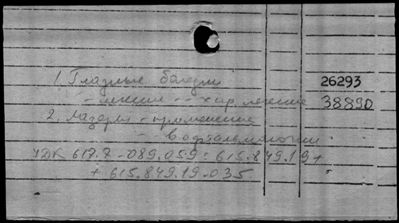 1. Глазные болезни
- лечение - - хир. лечение
26293
38890
2. Лазеры - применение
- в офтальмологии
УДК 617.7-089.059:615.849.19+
+ 615.849.19.035